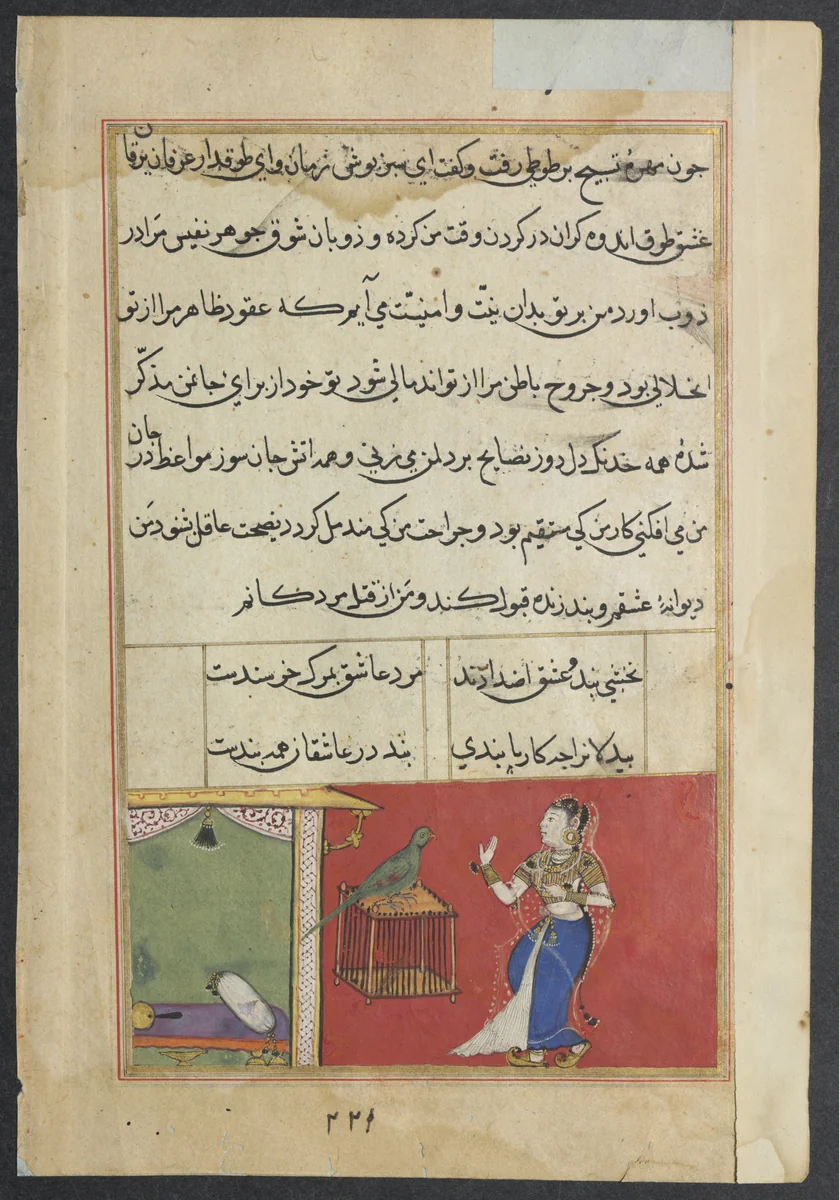 جون مهرهٔ تسبیح بر طوطی رفت و کفت ای سبز پوش زمان و ای طوقدار عرفان برقان
عشق طوق اندوه کران در کردن وقت من کرده و ذوبان شوق جوهر نفیس مرا در
ذوب اورد من بر تو بدان نیّت و امنیّت می آیم که عقود ظاهر مرا از تو
انحلالی بود و جروح باطن مرا از تو اندمالی شود تو خود از برای جانمن مذکّر
شدهٔ همه خدنک دل دوز نصایح بر دلمن می زنی و همه اتش جان سوز مواعظ در جان
من می افکنی کار من کی مستقیم بود و جراحت من کی مندمل کردد نصیحت عاقل شنود من
دیوانهٔ عشقم و پند زنده قبول کند و من از قبل مردکانم
نخشبی پند و عشق اضدادند مرد عاشق بمرک خرسندست
بیدلانرا جه کار با پندی پند در عاشقان همه بندست
۲۲۹